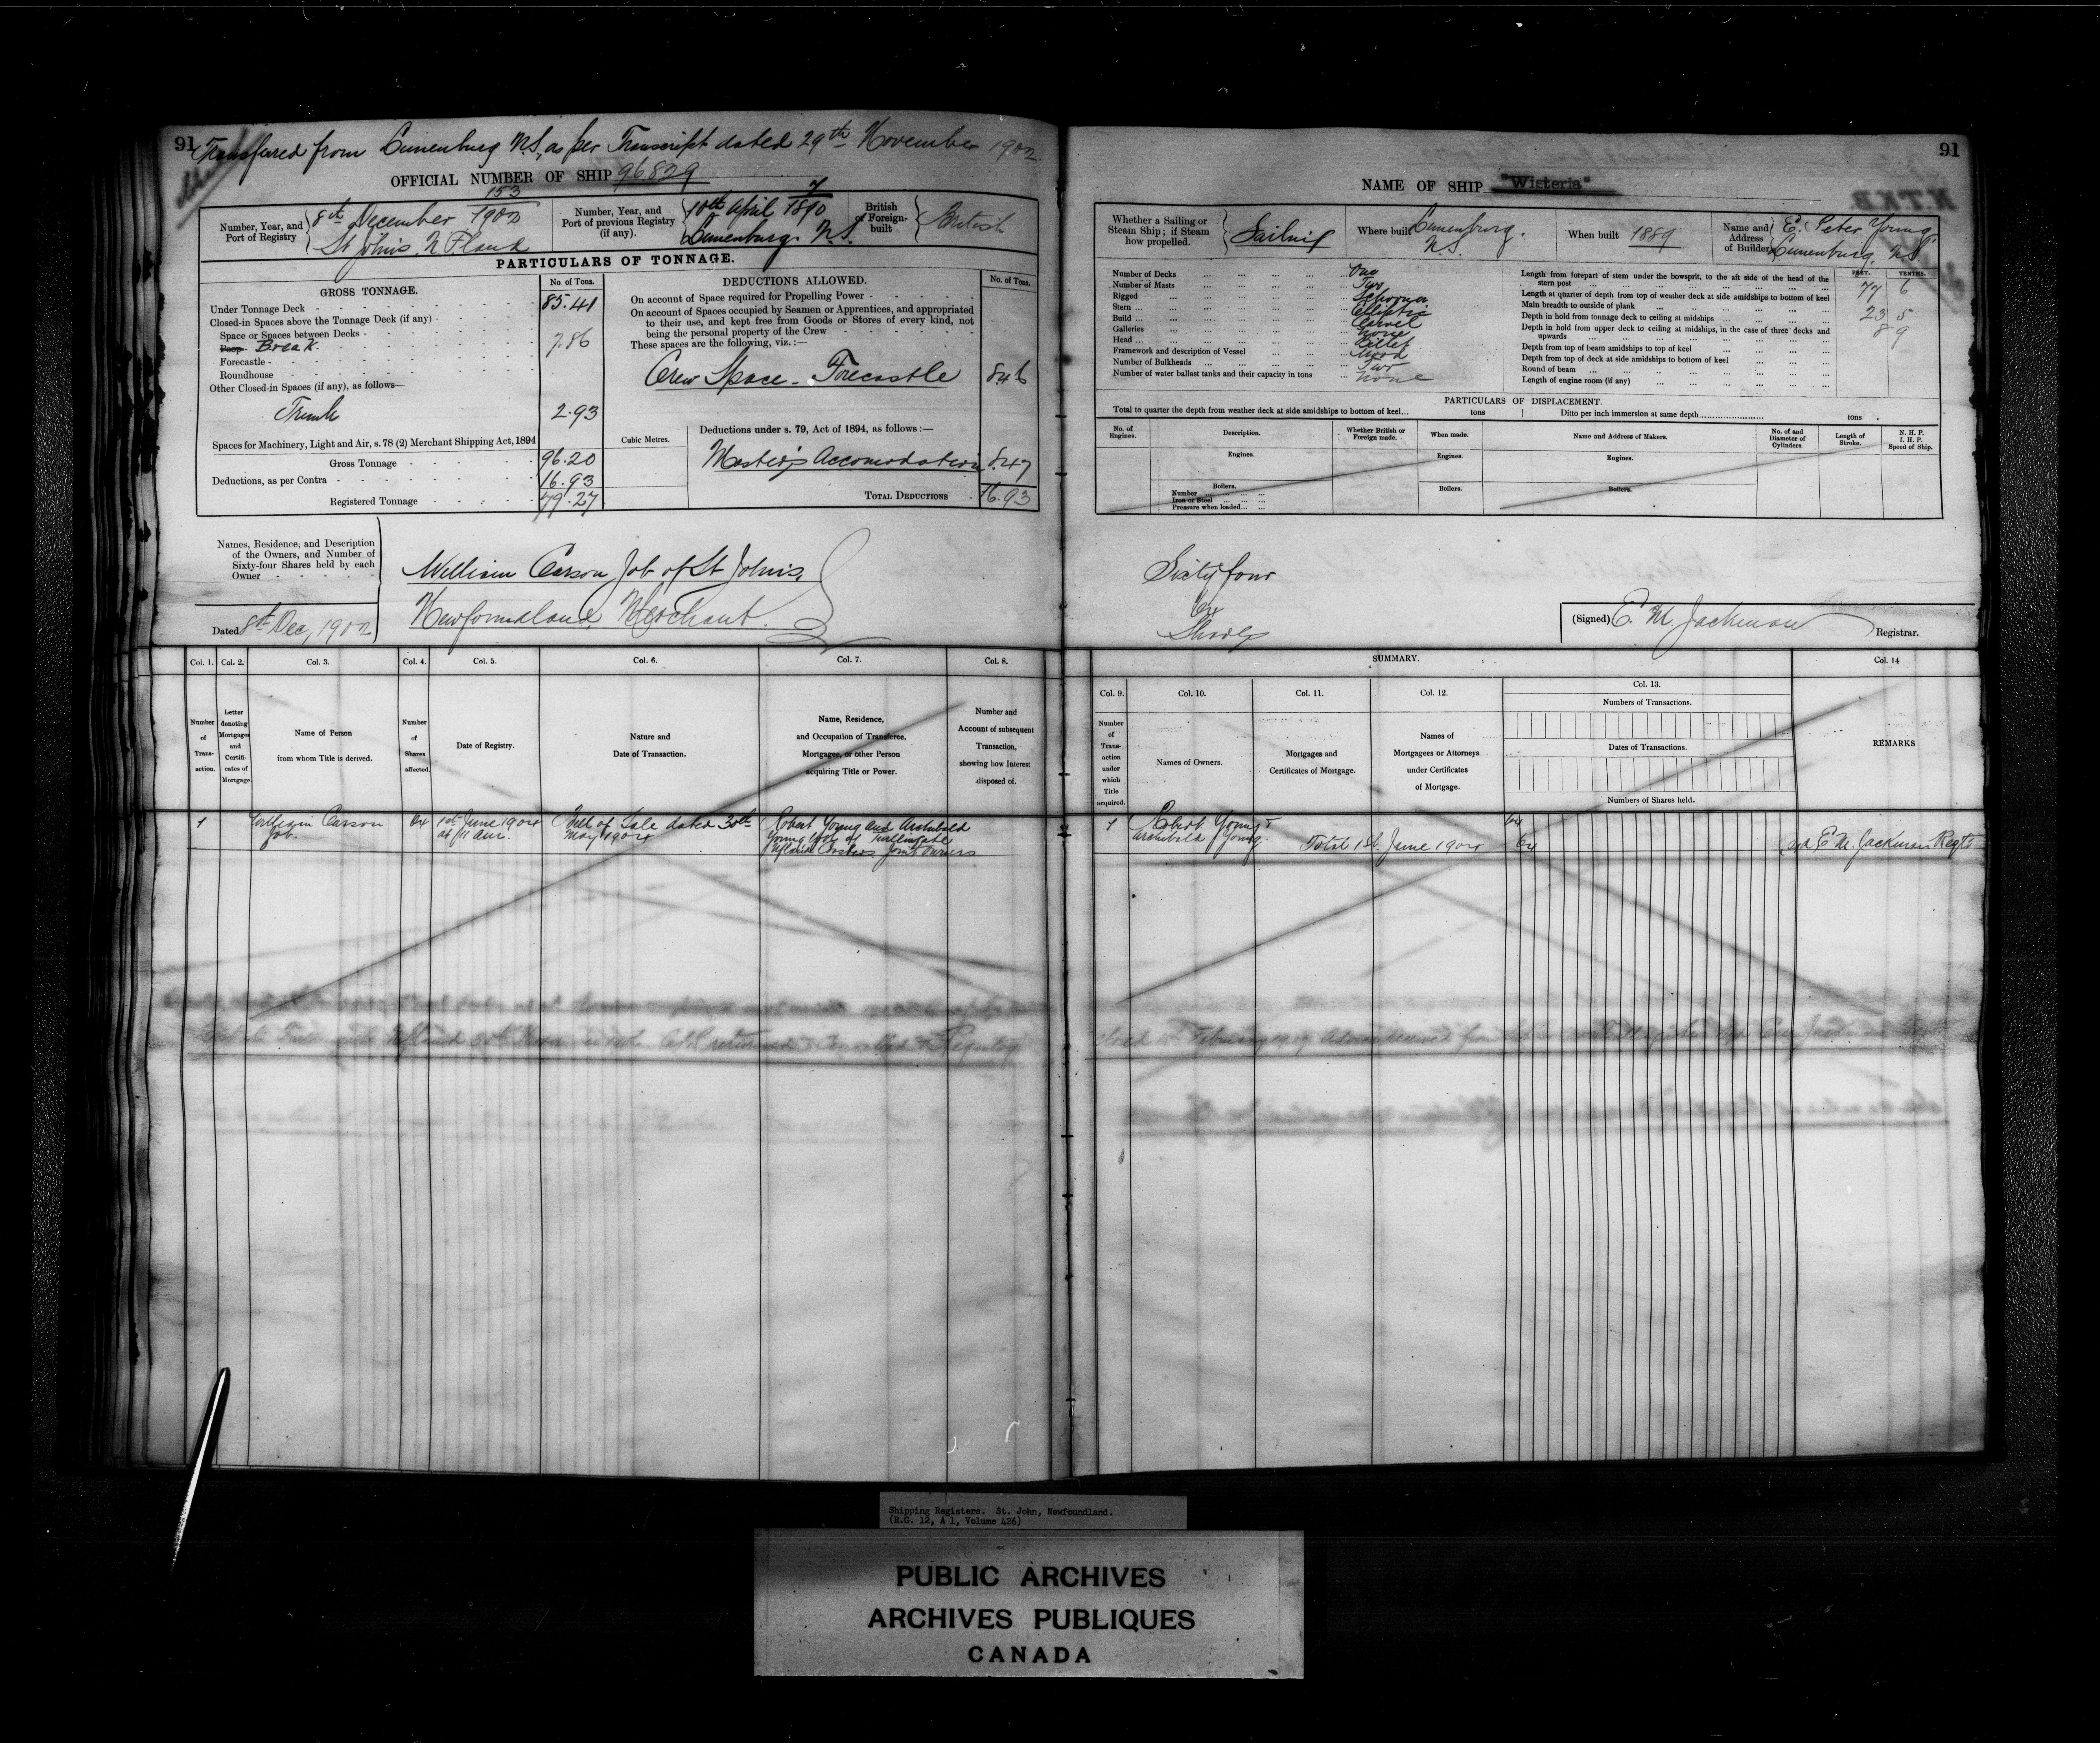 91
Transfered from Lunenburg N.S., as per Transcript dated 29th November 1902.
OFFICIAL NUMBER OF SHIP 96829
Number, Year, and Port of Registry
153
8th December 1902
St John's. N. F. Land
Number, Year, and Port of previous Registry (if any).
7
10th April 1890
Lunenburg. N.S.
British or Foreign-built
British
PARTICULARS OF TONNAGE.
GROSS TONNAGE.
No. of Tons.
Under Tonnage Deck 85.41
Closed-in Spaces above the Tonnage Deck (if any)
Space or Spaces between Decks
Poop Break 7.86
Forecastle
Roundhouse
Other Closed-in Spaces (if any), as follows—
Trunk 2.93
Spaces for Machinery, Light and Air, s. 78 (2) Merchant Shipping Act, 1894
Gross Tonnage 96.20
Deductions, as per Contra 16.93
Registered Tonnage 79.27
Cubic Metres.
DEDUCTIONS ALLOWED.
No. of Tons.
On account of Space required for Propelling Power
On account of Spaces occupied by Seamen or Apprentices, and appropriated
to their use, and kept free from Goods or Stores of every kind, not
being the personal property of the Crew
These spaces are the following, viz. :—
Crew Space - Forecastle 8.46
Deductions under s. 79, Act of 1894, as follows :—
Master's Accomodation 8.47
TOTAL DEDUCTIONS 16.93
Names, Residence, and Description
of the Owners, and Number of
Sixty-four Shares held by each
Owner
Dated 8th Dec, 1902
William Carson Job of St John's,
Newfoundland, Merchant.
Col. 1. Col. 2. Col. 3. Col. 4. Col. 5. Col. 6. Col. 7. Col. 8.
Number of Transaction.
Letter denoting Mortgages and Certificates of Mortgage.
Name of Person from whom Title is derived.
Number of Shares affected.
Date of Registry.
Nature and Date of Transaction.
Name, Residence, and Occupation of Transferee, Mortgagee, or other Person acquiring Title or Power.
Number and Account of subsequent Transaction, showing how Interest disposed of.
1
William Carson
Job.
64
1st June 1904
at 11 am.
Bill of Sale dated 30th
May 1904
Robert Young and Archibald
Young both of Twillingate
Nfland Joint Owners
91
NAME OF SHIP "Wisteria"
Whether a Sailing or Steam Ship; if Steam how propelled.
Sailing
Where built
Lunenburg.
N.S.
When built 1889
Name and Address of Builder
E. Peter Young
Lunenburg, N.S.
Number of Decks One
Number of Masts Two
Rigged Schooner
Stern Elliptic
Build Carvel
Galleries None
Head Billet
Framework and description of Vessel Wood
Number of Bulkheads Two
Number of water ballast tanks and their capacity in tons None
FEET. TENTHS.
Length from forepart of stem under the bowsprit, to the aft side of the head of the
stern post 77 6
Length at quarter of depth from top of weather deck at side amidships to bottom of keel
Main breadth to outside of plank 23 5
Depth in hold from tonnage deck to ceiling at midships 8 9
Depth in hold from upper deck to ceiling at midships, in the case of three decks and
upwards
Depth from top of beam amidships to top of keel
Depth from top of deck at side amidships to bottom of keel
Round of beam
Length of engine room (if any)
PARTICULARS OF DISPLACEMENT.
Total to quarter the depth from weather deck at side amidships to bottom of keel... tons
Ditto per inch immersion at same depth... tons.
No. of Engines.
Description.
Whether British or Foreign made.
When made.
Name and Address of Makers.
No. of and Diameter of Cylinders.
Length of Stroke.
N. H. P. I. H. P. Speed of Ship.
Engines. Engines. Engines.
Boilers. Boilers. Boilers.
Number
Iron or Steel
Pressure when loaded
Sixty four
64
Shares
(Signed) E. M. Jackman
Registrar.
SUMMARY.
Col. 9. Col. 10. Col. 11. Col. 12. Col. 13. Col. 14
Number of Transaction under which Title acquired.
Names of Owners.
Mortgages and Certificates of Mortgage.
Names of Mortgagees or Attorneys under Certificates of Mortgage.
Numbers of Transactions.
Dates of Transactions.
Numbers of Shares held.
REMARKS
1
Robert Young &
Archibald Young.
64
Total 1st June 1904 64
E. M. Jackman Regtr
Shipping Registers. St. John, Newfoundland.
(R.G. 12, A 1, Volume 426)
PUBLIC ARCHIVES
ARCHIVES PUBLIQUES
CANADA